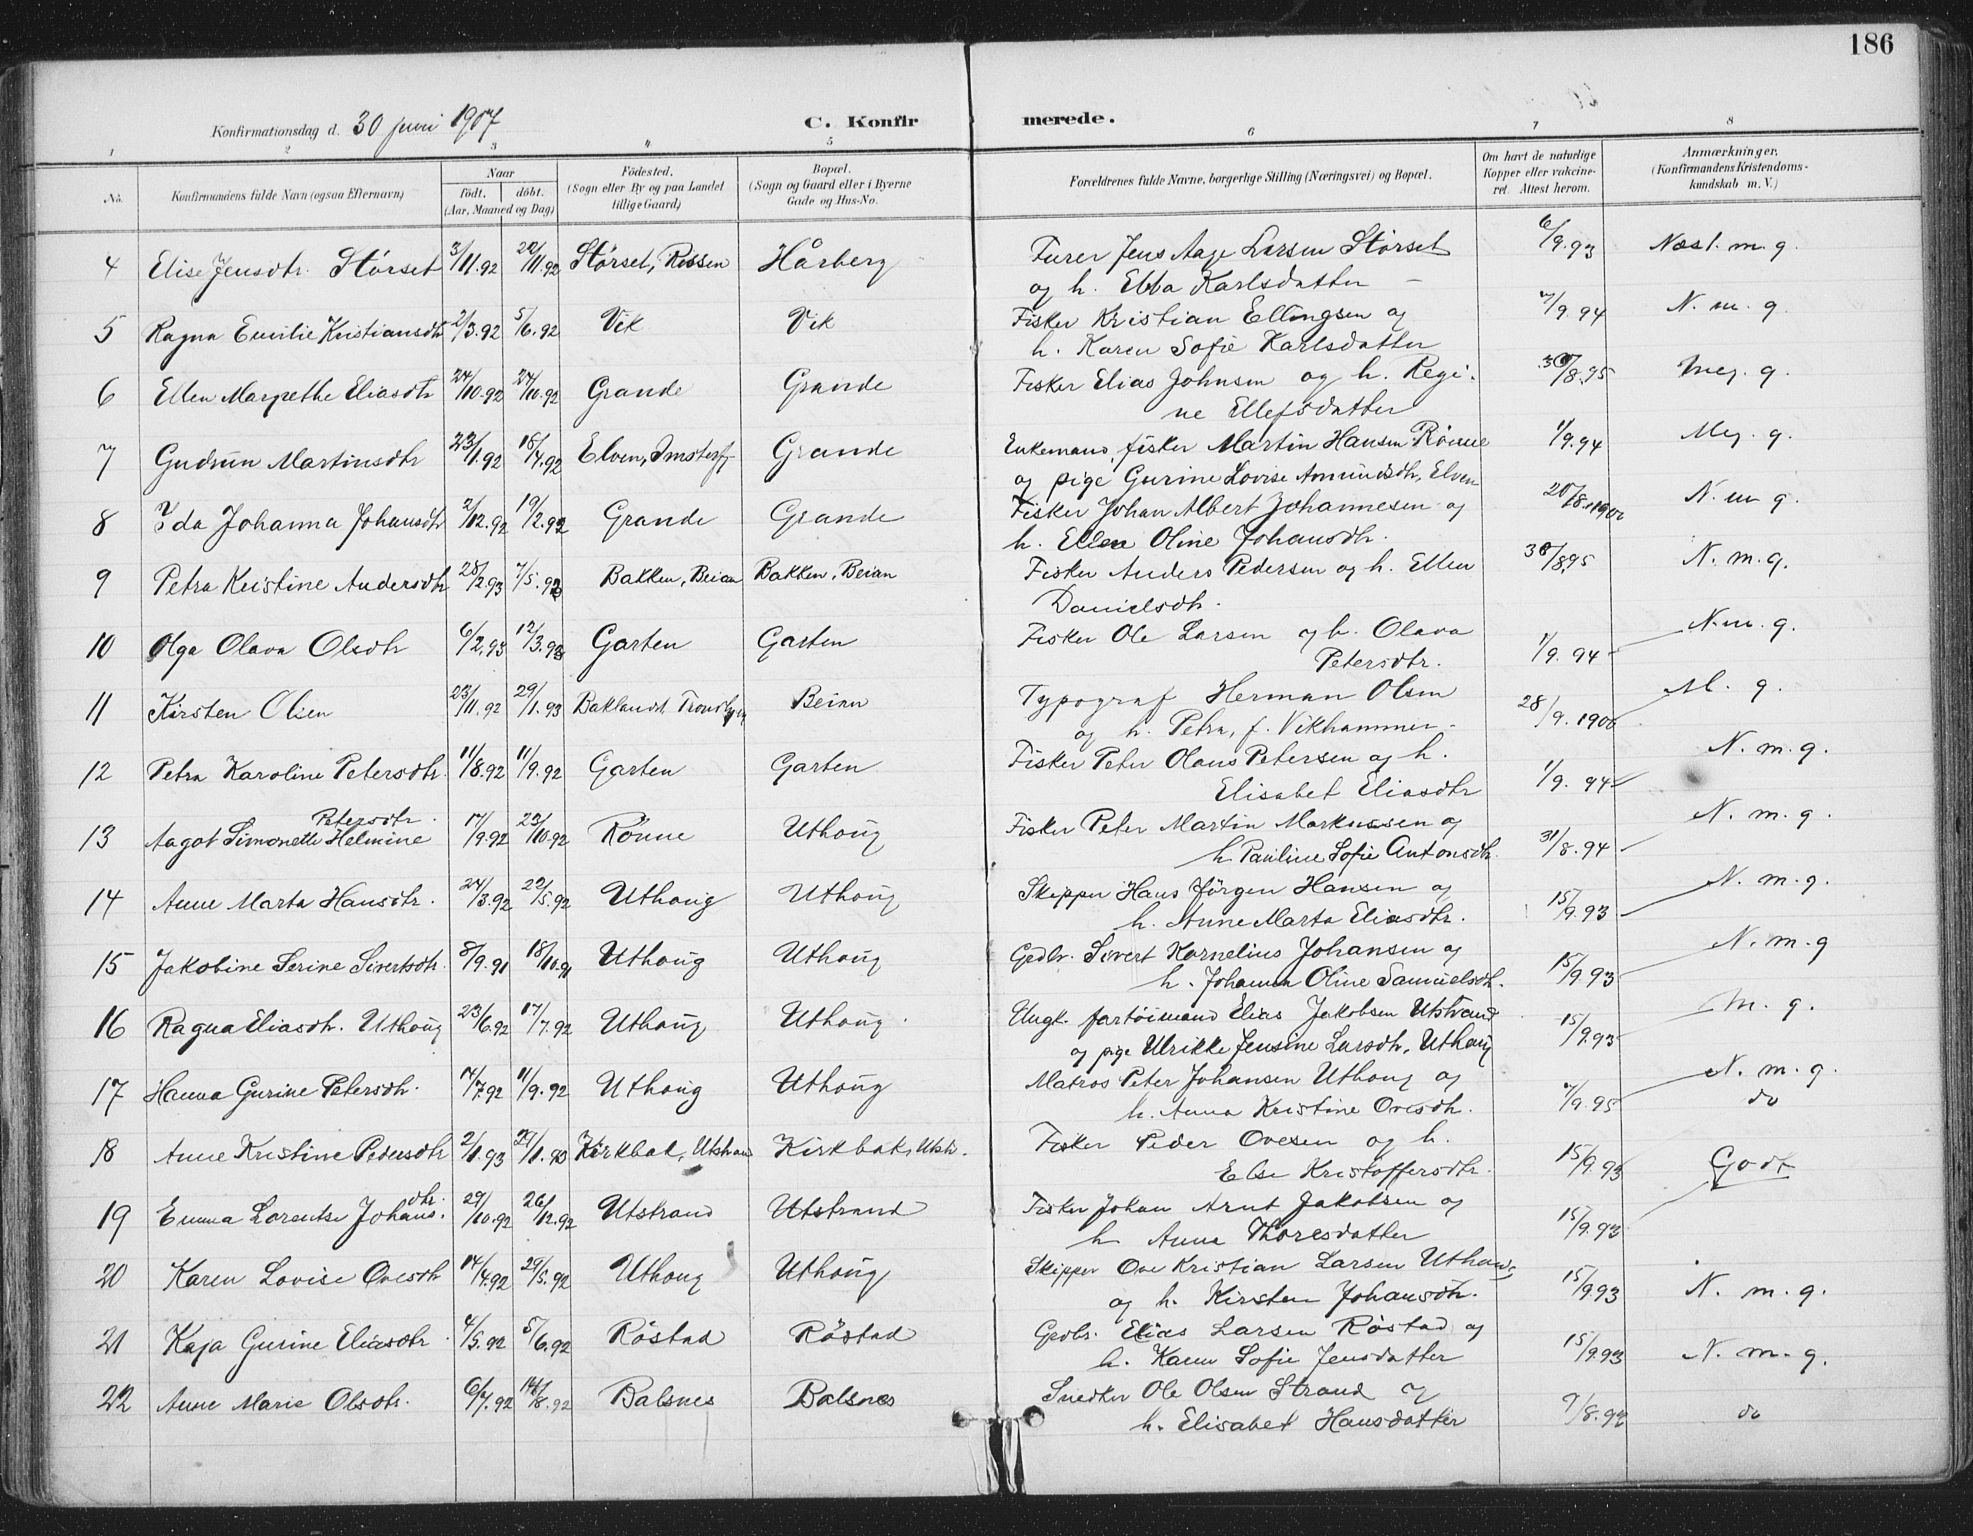 186
Konfirmationsdag d. 30 juni 1907
C. Konfirmerede.
1 2 3 4 5 6 7 8
No. Konfirmandens fulde Navn (ogsaa Efternavn) Naar født. døbt. (Aar, Maaned og Dag) Fødested. (Sogn eller By og paa Landet tillige Gaard) Bopæl. (Sogn og Gaard eller i Byerne Gade og Hus-No. Forældrenes fulde Navne, borgerlige Stilling (Næringsvei) og Bopæl. Om havt de naturlige Kopper eller vakcineret. Attest herom. Anmærkninger. (Konfirmandens Kristendomskundskab m. V.)
4 Elise Jensdtr. Størset 3/11.92 22/11.92 Størset, Rissen Hårberg Furer Jens Aage Larsen Størset 6/9.93 Næst. m. g.
og h. Ebba Karlsdatter
5 Ragna Emilie Kristiansdtr 2/3.92 5/6.92 Vik Vik Fisker Kristian Ellingsen og 7/9.94 N. m. g.
h. Karen Sofie Karlsdatter
6 Ellen Margrethe Eliasdtr 24/10.92 24/10.92 Grande Grande Fisker Elias Johnsen og h. Regi- 30/8.95 Meg. g.
ne Ellefsdatter
7 Gudrun Martinsdtr 23/1.92 18/4.92 Elven, Grande Enkemand, fisker Martin Hansen Rønne 1/9.94 Meg. g.
og pige Gurine Lovise Amundsdtr, Elven
8 Ida Johanna Johansdtr 2/12.92 19/2.93 Grande Grande Fisker Johan Albert Johannesen og 20/8.1900 N. m. g.
h. Ellen Oline Johansdtr.
9 Petra Kristine Andersdtr 28/2.93 7/5.93 Bakken, Beian Bakken, Beian Fisker Anders Pedersen og h. Ellen 30/8.95 N. m. g.
Danielsdtr.
10 Olga Olava Olsdtr 6/2.93 12/3.93 Garten Garten Fisker Ole Larsen og h. Olava 1/9.94 N. m. g.
Petersdtr.
11 Kirsten Olsen 23/11.92 29/1.93 Baklandet, Beian Typograf Herman Olsen 28/9.1906 M. g.
og h. Petra, f. Vikhammer.
12 Petra Karoline Petersdtr. 11/8.92 11/9.92 Garten Garten Fisker Peter Olaus Petersen og h. 1/9.94 N. m. g.
Elisabet Eliasdtr
13 Aagot Simonette Helmine Petersdtr. 17/9.92 23/10.92 Rönne Uthoug Fisker Peter Martin Markussen og 31/8.94 N. m. g.
h. Pauline Sofie Antonsdtr.
14 Anne Marta Hansdtr. 24/3.92 22/5.92 Uthoug Uthoug Skipper Hans Jörgen Hansen og 15/9.93 N. m. g.
h. Anne Marta Eliasdtr.
15 Jakobine Serine Sivertsdtr. 8/9.91 18/10.91 Uthoug Uthoug Grdbr. Sivert Kornelius Johansen og 15/9.93 N. m. g
h. Johanna Oline Samuelsdtr.
16 Ragna Eliasdtr. Uthoug 23/6.92 17/7.92 Uthoug Uthoug Ungk. fartöimand Elias Jakobsen Utstrand 15/9.93 M. g.
og pige Ulrikke Jensine Larsdtr, Uthoug
17 Hanna Gurine Petersdtr. 14/7.92 11/9.92 Uthoug Uthoug Matros Peter Johansen Uthoug og 7/9.95 N. m. g.
h. Anna Kristine Ovesdtr.
18 Anne Kristine Pedersdtr 2/1.93 Kirkbak, Utstrand Kirkbak, Utstr. Fisker Peder Ovesen og h. 15/9.93 do
Else Kristoffersdtr.
19 Emma Lorentse Johansdtr. 29/10.92 26/12.92 Utstrand Utstrand Fisker Johan Arnt Jakobsen og 15/9.93 Godt
h Anna Thoresdatter
20 Karen Lovise Ovesdtr 14/4.92 29/5.92 Uthoug Uthoug Skipper Ove Kristian Larsen Uthoug 15/9.93 N. m. g.
og h. Kirsten Johansdtr.
21 Kaja Gurine Eliasdtr 4/5.92 5/6.92 Röstad Röstad Grdbr. Elias Larsen Röstad og 15/9.93 N. m. g.
h. Karen Sofie Jensdatter
22 Anne Marie Olsdtr. 6/7.92 14/8.92 Balsnes Balsnes Snedker Ole Olsen Strand og 9/8.92 do
h. Elisabet Hansdatter